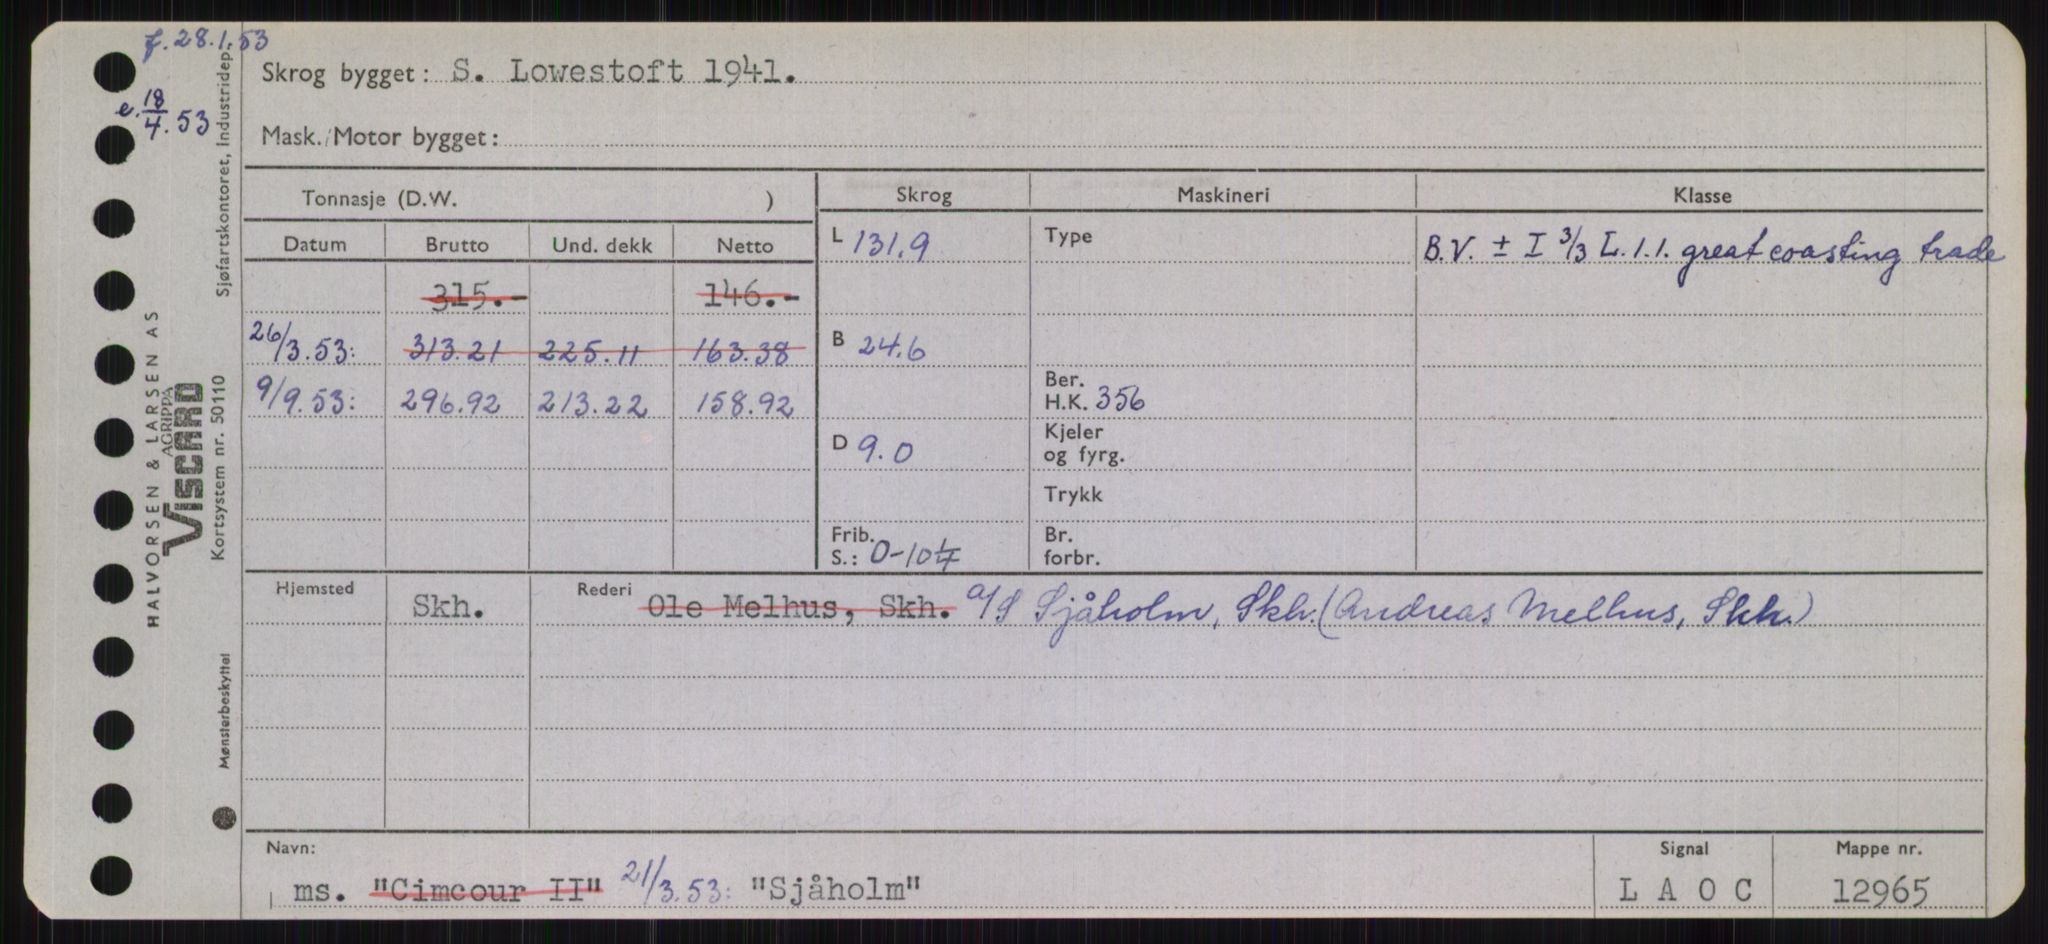 f. 28.1.53
e. 18/4.53
Skrog bygget: S. Lowestoft 1941.
Mask./Motor bygget:
Tonnasje (D.W. )
Skrog
Maskineri
Klasse
Datum Brutto Und. dekk Netto
L 131.9
Type
B.V. ± I 3/3 L.1.1. great coasting trade
315.- 146.-
26/3.53: 313.21 225.11 163.38
B 24.6
9/9.53: 296.92 213.22 158.92
Ber.
H.K. 356
D 9.0
Kjeler
og fyrg.
Trykk
Frib.
S.: 0-10
Br.
forbr.
Hjemsted Skh.
Rederi Ole Melhus, Skh. a/S Sjåholm, Skh. (Andreas Melhus, Skh.)
Navn:
ms. "Cimcour II" 21/3.53: "Sjåholm"
Signal
L A O C
Mappe nr.
12965
HALVORSEN & LARSEN AS
AGRIPPA
VISCARD
Kortsystem nr. 50110
Sjøfartskontoret, Industridep.
Mønsterbeskyttet